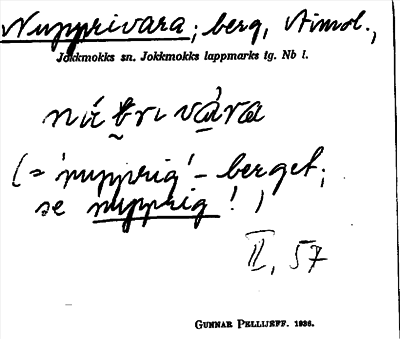 Nupprivara; berg, Atmol.,
Jokkmokks sn. Jokkmokks lappmarks tg. Nb l.
(= 'nypprig' - berget;
se nypprig! )
II, 57
GUNNAR PELLIJEFF. 1936.